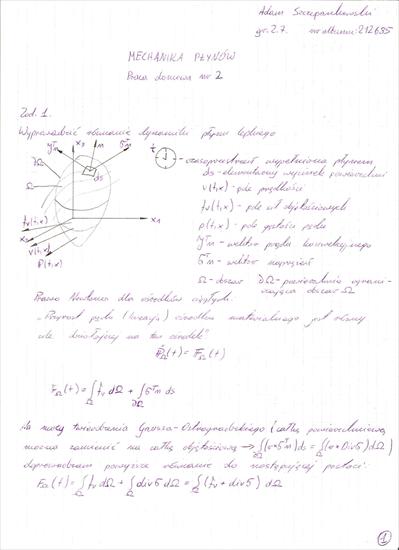 Adam Szczepankowski
gr. 2.7. nr albumu: 212695
MECHANIKA PŁYNÓW
Praca domowa nr 2
Zad. 1.
Wyprowadzić równanie dynamiki płynu lepkiego
x₃ n σᵀn t
- czasoprzestrzeń wypełniona płynem
∂Ω ds ds - elementarny wycinek powierzchni
Ω v(t,x) - pole prędkości
fv(t,x) - pole sił objętościowych
fv(t,x) x₁ p(t,x) - pole gęstości pędu
x₂ - wektor prądu konwekcyjnego
v(t,x) σᵀn - wektor naprężeń
p(t,x) Ω - obszar ∂Ω - powierzchnia ograni-
czająca obszar Ω
Prawo Newtona dla ośrodków ciągłych:
"Przyrost pędu ciała materialnego jest równy
sile działającej na ten ośrodek"
Ṗ_Ω(t) = F_Ω(t)
F_Ω(t) = ∫_Ω fv dΩ + ∫_∂Ω σᵀn ds
Na mocy twierdzenia Gaussa-Ostrogradskiego (całkę powierzchniową
można zamienić na całkę objętościową → ∫(v∘σᵀn)ds = ∫(v∘Div σ)dΩ)
doprowadzam powyższe równanie do następującej postaci:
F_Ω(t) = ∫_Ω fv dΩ + ∫_Ω div σ dΩ = ∫_Ω (fv + div σ) dΩ
1